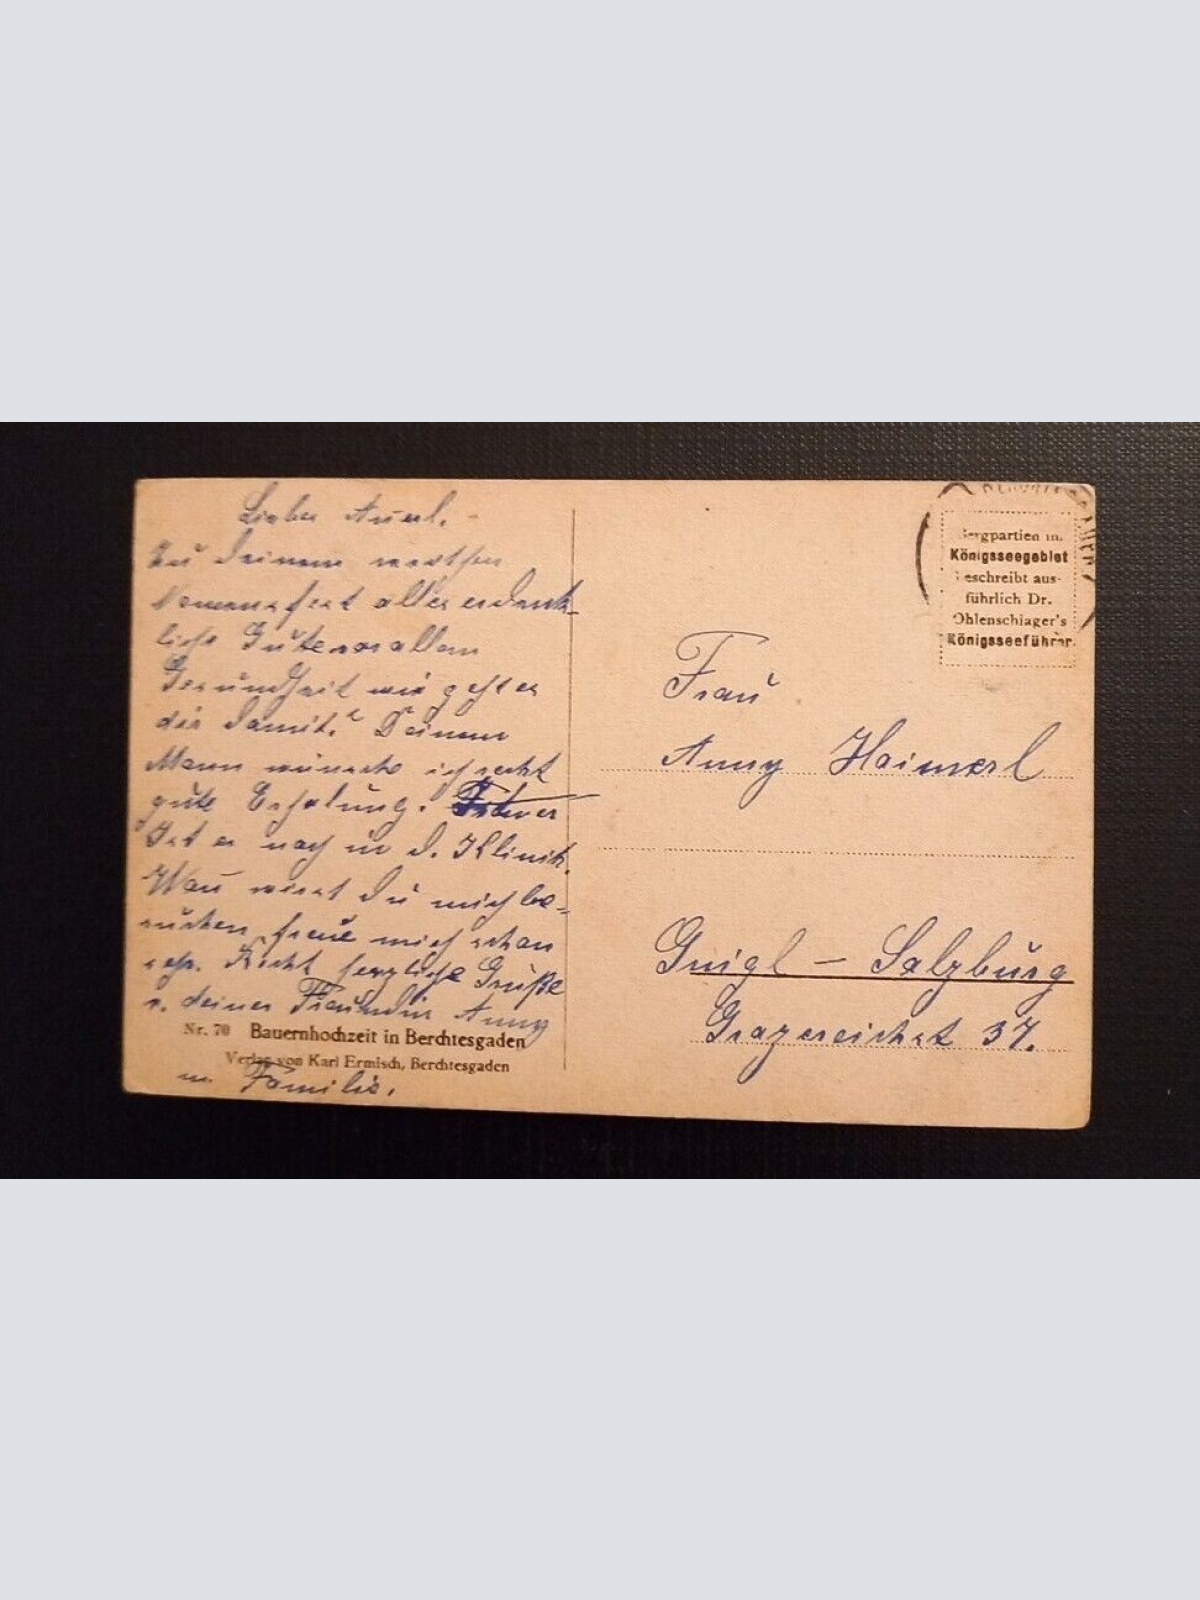 Liebe Annerl.
Zu Deinem werthen
Namensfest alles erdenk-
liche Gute vor allem
Gesundheit wie geht es
dir damit? Deinem
Mann wünsche ich recht
gute Erholung.
Ist er noch in d. Klinik.
Wan wirst Du mich be-
suchen freue mich schon
sehr. Recht herzliche Grüße
v. deiner Freundin Anny
Nr. 70 Bauernhochzeit in Berchtesgaden
Verlag von Karl Ermisch, Berchtesgaden
u. Familie.
Bergpartien im
Königsseegebiet
beschreibt aus-
führlich Dr.
Ohlenschlager's
Königsseeführer.
Frau
Anny Haimerl
Gnigl – Salzburg
Grazereichst 37.